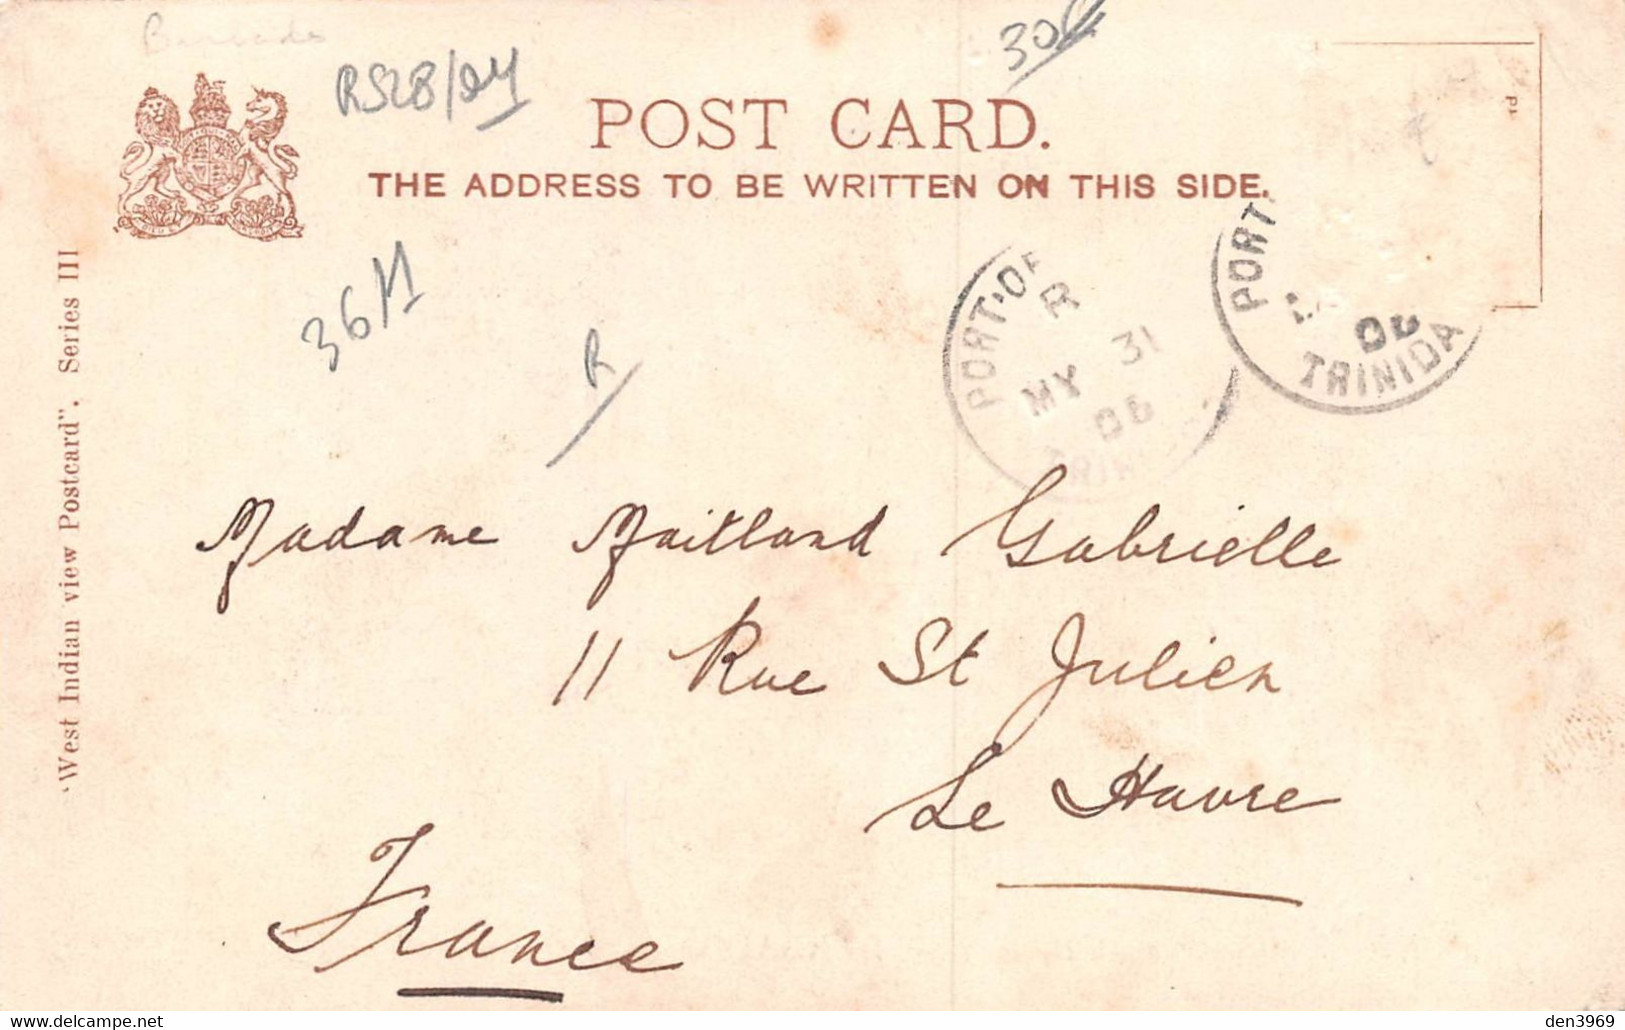 RS28/24
30€
POST CARD.
THE ADDRESS TO BE WRITTEN ON THIS SIDE.
"West Indian view Postcard". Series III
36/1
R
PORT·OF
R
MY 31
06
TRIN
PORT
06
TRINIDA
Madame Maitland Gabrielle
11 Rue St Julien
Le Havre
France
den3969